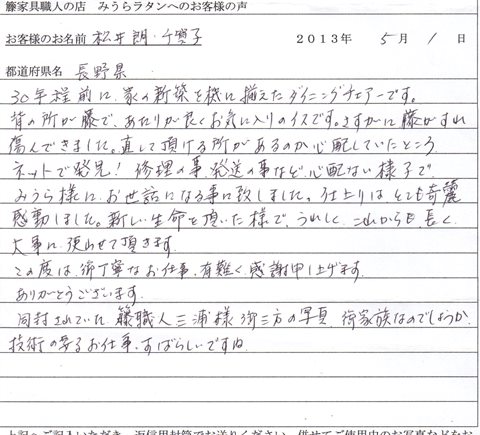 籐家具職人の店 みうらラタンへのお客様の声
お客様のお名前 松井 朗・千寶子 2013年 5月 1日
都道府県名 長野県
30年程前に、家の新築を機に揃えたダイニングチェアーです。
背の所が藤で、あたりが良くお気に入りのイスです。さすがに藤がすれ
傷んできました。直して頂ける所があるのか心配していたところ
ネットで発見! 修理の事、発送の事など、心配ない様子で
みうら様に、お世話になる事に致しました。仕上りは、とても奇麗
感動しました。新しい生命を頂いた様で、うれしく、これからも、長く、
大事に、使わせて頂きます。
この度は、御丁寧なお仕事、有難く、感謝申し上げます。
ありがとうございます。
同封されていた、籐職人三浦様 御三方の写真、御家族なのでしょうか。
技術の要るお仕事、すばらしいですね。
上記へご記入いただき、返信用封筒でお送りください。併せてご使用中のお写真などをお